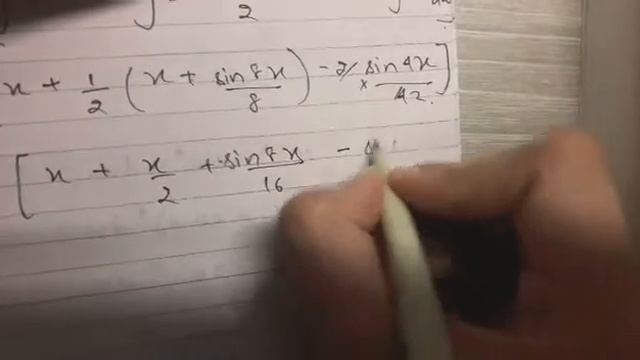 ∫ 2 ∫
x + 1/2 ( x + sin8x/8 ) - 2 × sin4x/42 ]
[ x + x/2 + sin8x/16 - s